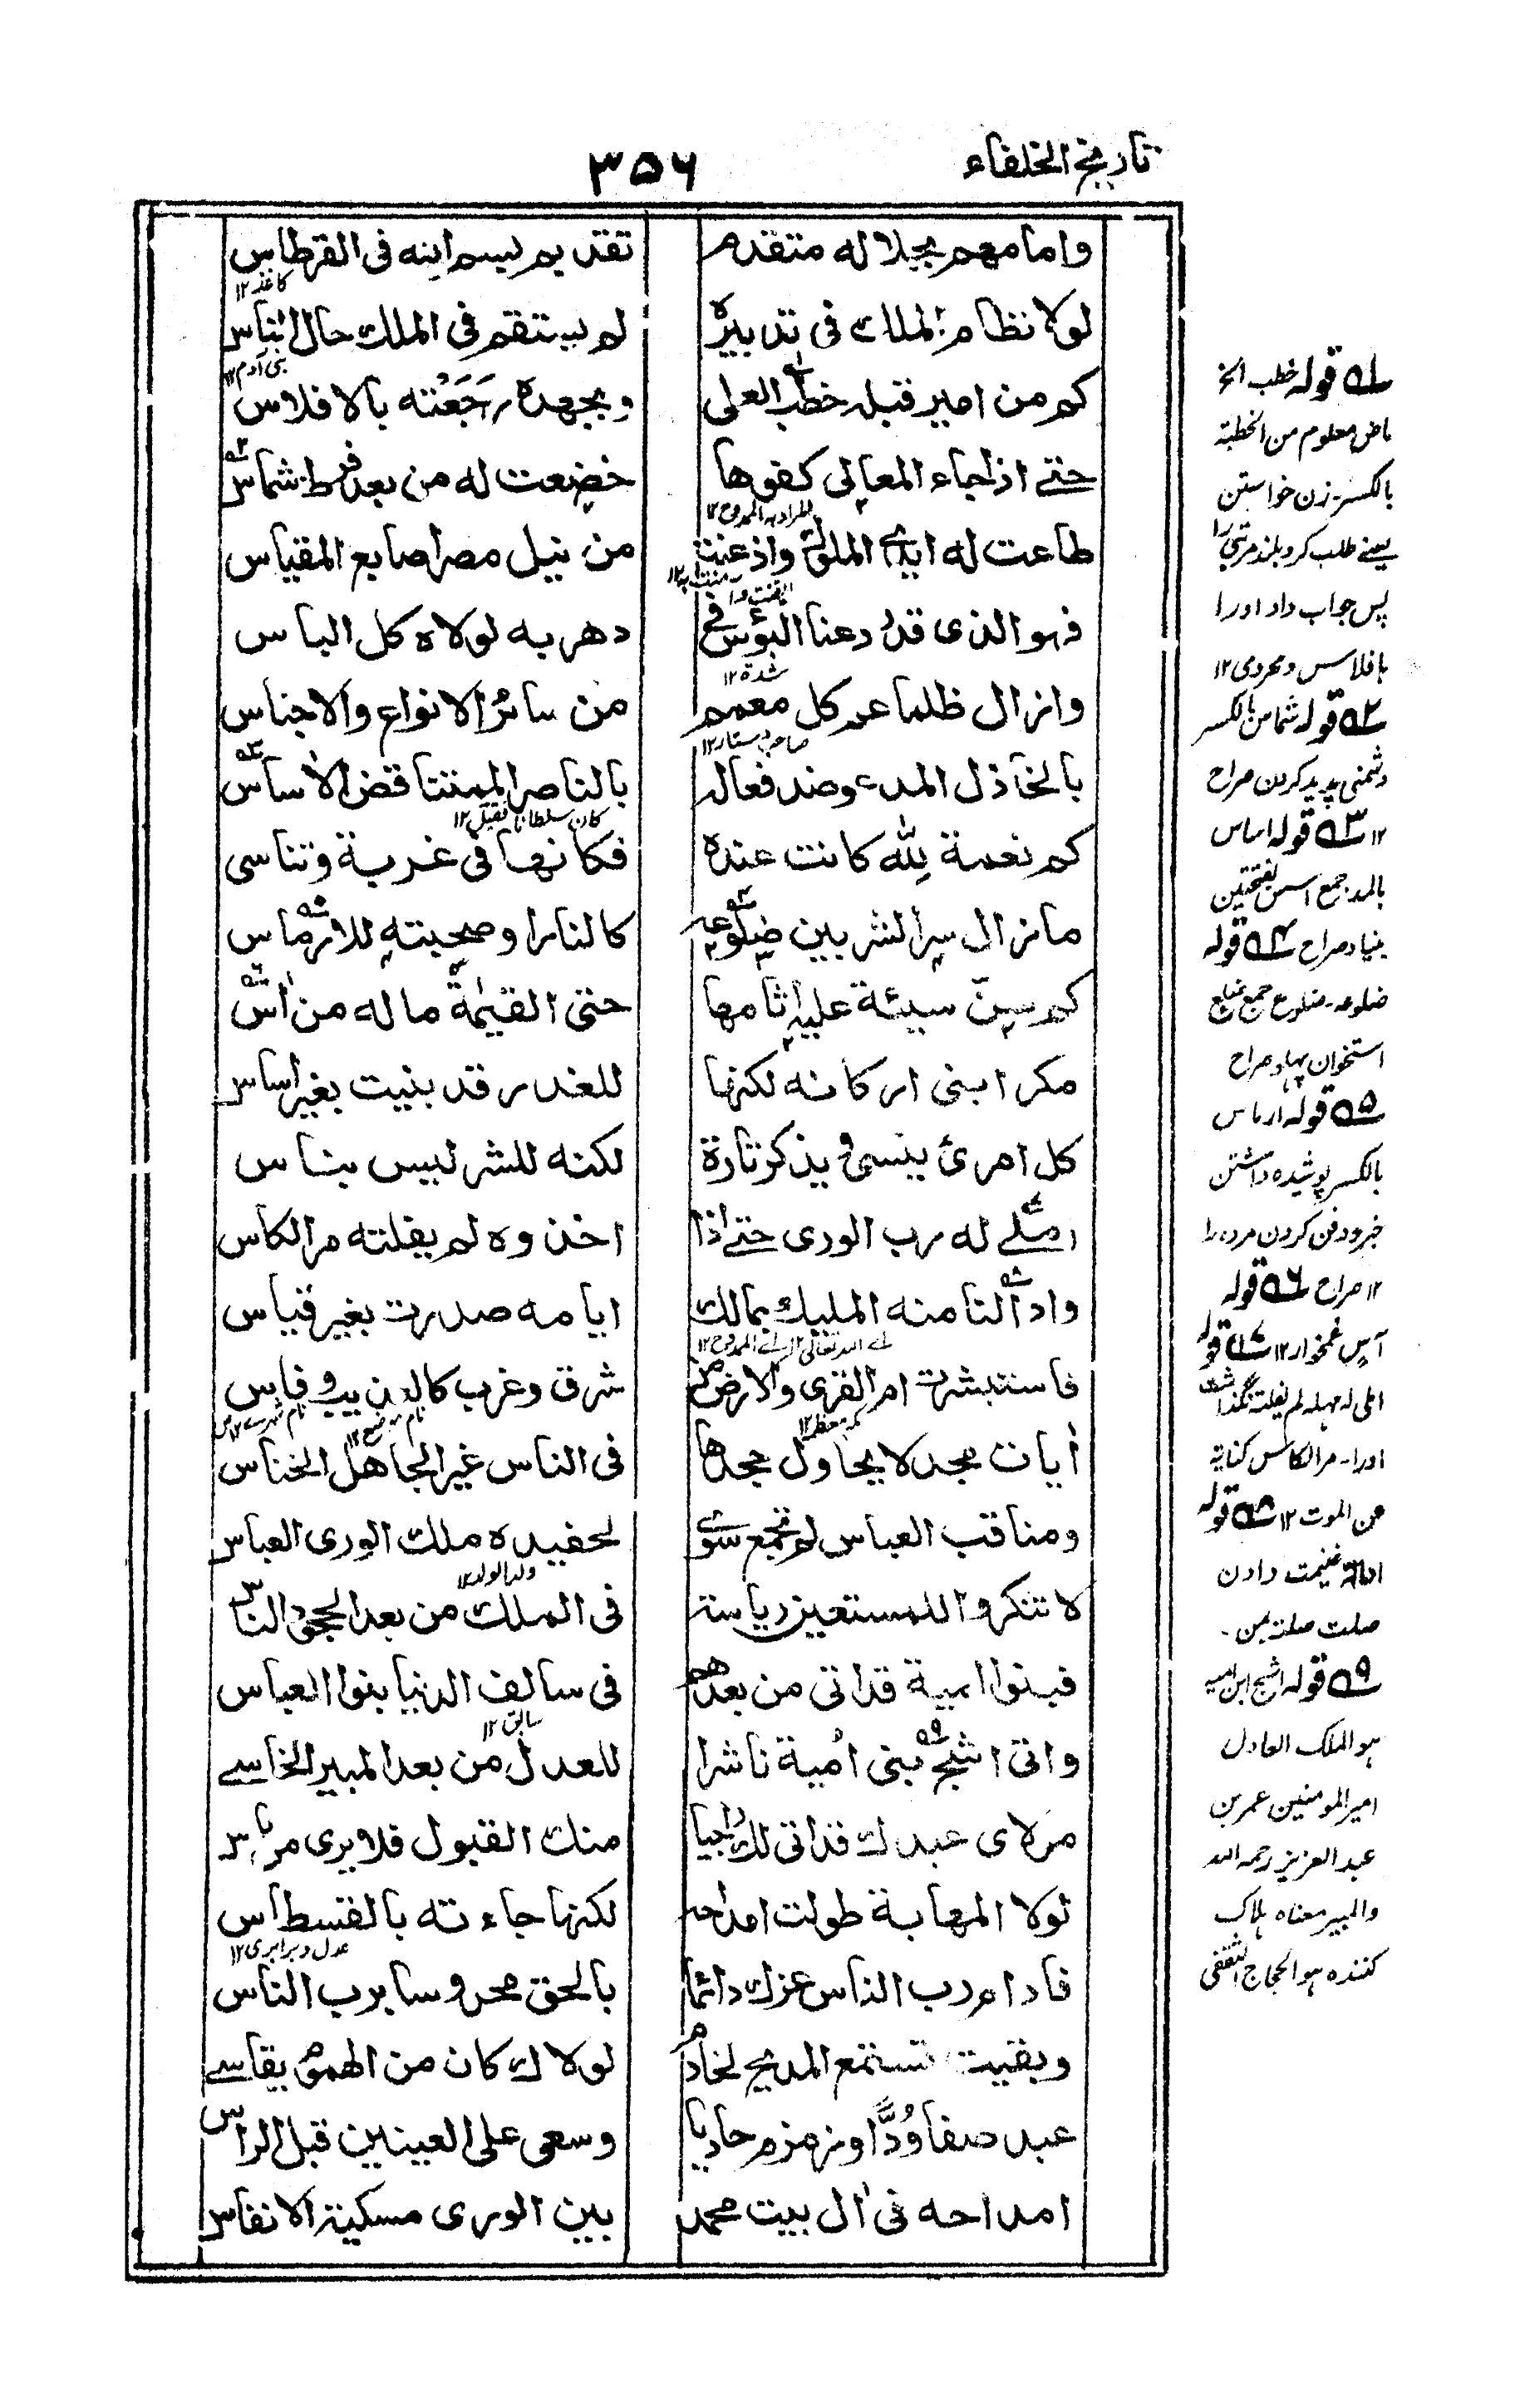 تاريخ الخلفاء
٣٥٦
وامامهم بجلاله متقدم
تقديم بسم الله فى القرطاس
كاغذ ١٢
لولا نظام الملك فى تدبيره
لم يستقم فى الملك حال الناس
بنى آدم ١٢
كم من امير قبله خطب العلى
وبجهده رجعته بالافلاس
حتے اذا جاء المعالى كفوها
خضعت له من بعد فرط شماس
المراد به الممدوح ١٢
طاعت له ايدى الملوك واذعنت
من نيل مصر اصابع المقياس
فهو الذى قد رد عنا البؤس فے
دهر به لولاه كل الباس
شدة ١٢
وازال ظلما عم كل معمم
من سائر الانواع والاجناس
صاحب دستار ١٢
بالخاذل المدعو ضد فعاله
بالناصر المتناقض الاساس
كان سلطانا قبله ١٢
كم نعمة لله كانت عنده
فكانها فى غربة وتناسى
مازال سر الشر بين ضلوعه
كالنار او صحبته للارماس
كم سن سيئة عليه اثامها
حتى القيمة ماله من اس
مكرا بنى اركانه لكنها
للغدر قد بنيت بغير اساس
كل امرئ ينسى و يذكر تارة
لكنه للشر ليس بناس
املے له رب الورى حتے اذا
اخذوه لم يفلته مر الكاس
وادالنا منه المليك بمالك
ايامه صدرت بغير قياس
اے اللہ تعالى ١٢ اے الممدوح ١٢
فاستبشرت ام القرى والارض من
شرق وغرب كالعذيب وفاس
مكه معظمه ١٢
أيات مجد لا يحاول جحدها
فى الناس غير الجاهل الخناس
ومناقب العباس لم تجمع سوے
لحفيده ملك الورى العباس
ولد الولد ١٢
لا تنكروا للمستعين رياسة
فى الملك من بعد الجحود الناس
فبنوا امية قد اتى من بعدهم
فى سالف الدنيا بنوا العباس
سابق ١٢
واتى اشج بنى امية ناشرا
للعدل من بعد المبير الخاسے
مولاى عبدك قد اتى لك راجيا
منك القبول فلا يرى من باس
لولا المهابة طولت امداحه
لكنها جاءته بالقسطاس
عدل و برابرى ١٢
فادام رب الناس عزك دائما
بالحق محروسا برب الناس
وبقيت تستمع المديح لخادم
لولاك كان من الهموم يقاسے
عبد صفا وُدًّا وزمزم حاديا
وسعى على العينين قبل الراس
امداحه فى ال بيت محمد
بين الورى مسكية الانفاس
١ قوله خطب الخ
ماض معلوم من الخطبة
بالكسر زن خواستن
يعنے طلب كرد بلند مرتبتى را
پس جواب داد او را
بافلاس و محرومى ١٢
٢ قوله شماس بالكسر
دشمنى پديد كردن صراح
١٢ ٣ قوله اساس
بالمد جمع اسس بفتحتين
بنياد صراح ٤ قوله
ضلوعه - ضلوع جمع ضلع
استخوان پهلو صراح
٥ قوله ارماس
بالكسر پوشيده داشتن
خبر و دفن كردن مرده را
١٢ صراح ٦ قوله
آس غمخوار ١٢ ٧ قوله
املى له مهله لم يفلته نگذاشت
او را - مر الكاس كناية
عن الموت ١٢ ٨ قوله
ادالة غنيمت دادن
صلت صلته بمن -
٩ قوله اشج ابن اميه
هو الملك العادل
امير المومنين عمر بن
عبد العزيز رحمه الله
والمبير معناه هلاک
كننده هو الحجاج الثقفى